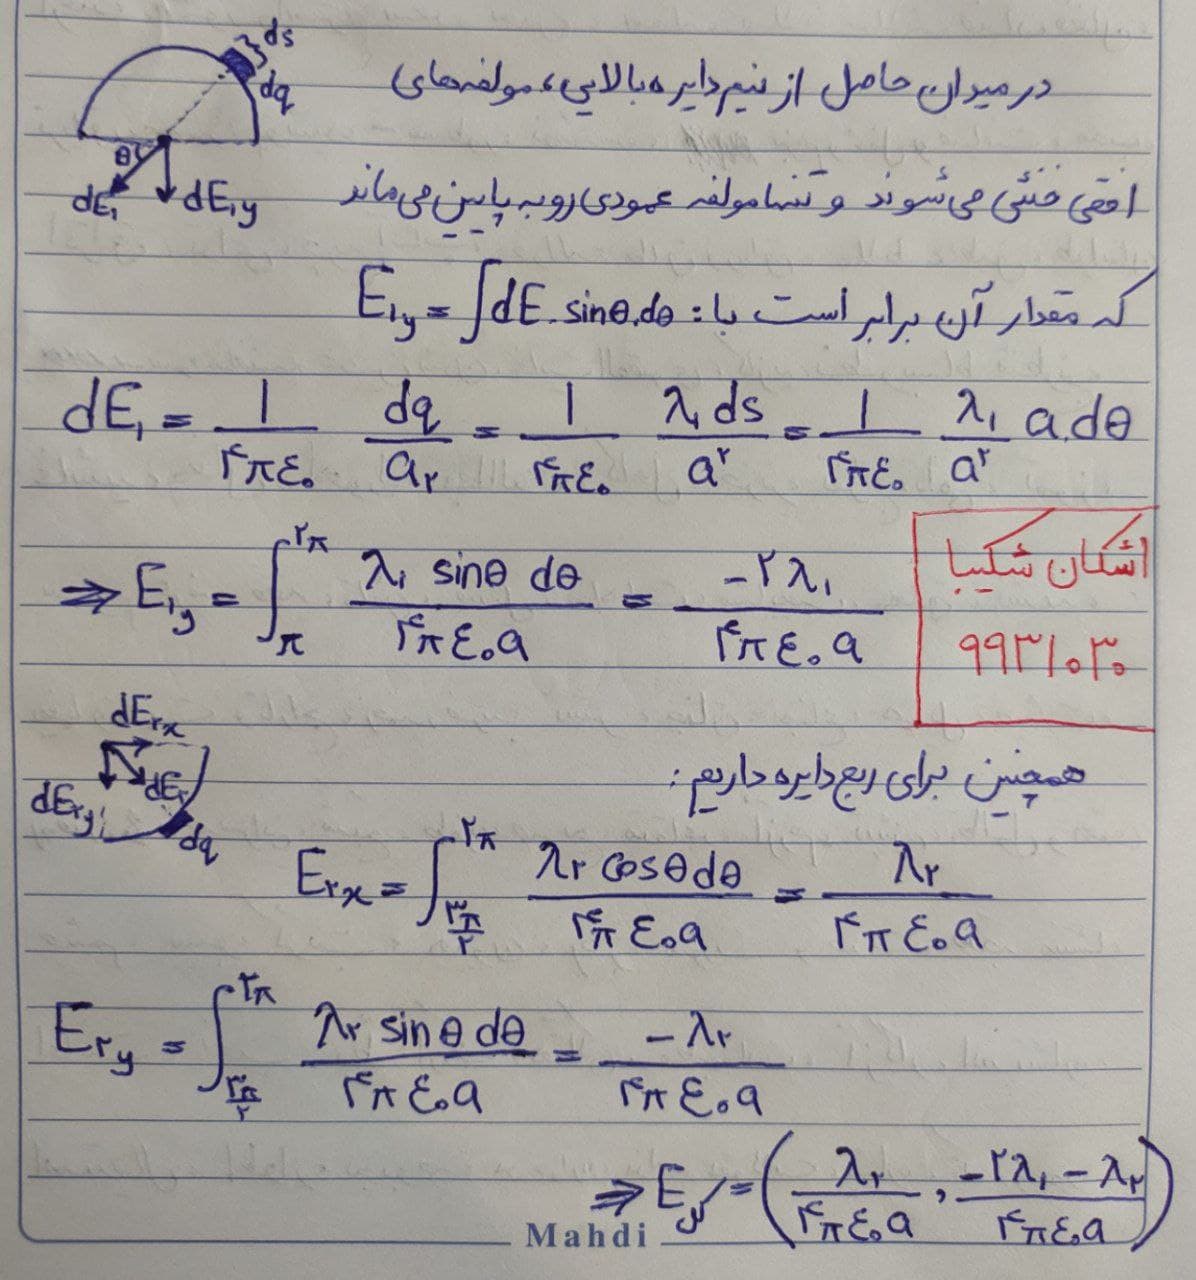 ds
dq
در میدان حاصل از نیم دایره بالایی، مولفه‌های
θ
dE₁ dE₁y
افقی خنثی می‌شوند و تنها مولفه عمودی رو به پایین می‌ماند
که مقدار آن برابر است با : E₁y = ∫dE. sinθ.dθ
dE₁ = ۱/۴πε₀ dq/a۲ = ۱/۴πε₀ λ₁ds/a² = ۱/۴πε₀ λ₁/a² a.dθ
⇒ E₁y = ∫_π^۲π λ₁ sinθ dθ/۴πε₀a = -۲λ₁/۴πε₀a
اشکان شکیبا
۹۹۳۱۰۳۰
همچنین برای ربع دایره داریم :
dE۲x
dE۲
dE۲y
dq
E۲x = ∫_۳π/۲^۲π λ۲ cosθdθ/۴πε₀a = λ۲/۴πε₀a
E۲y = ∫_۳π/۲^۲π λ۲ sinθ dθ/۴πε₀a = -λ۲/۴πε₀a
⇒ Eکل = (λ۲/۴πε₀a , -۲λ₁-λ۲/۴πε₀a)
Mahdi